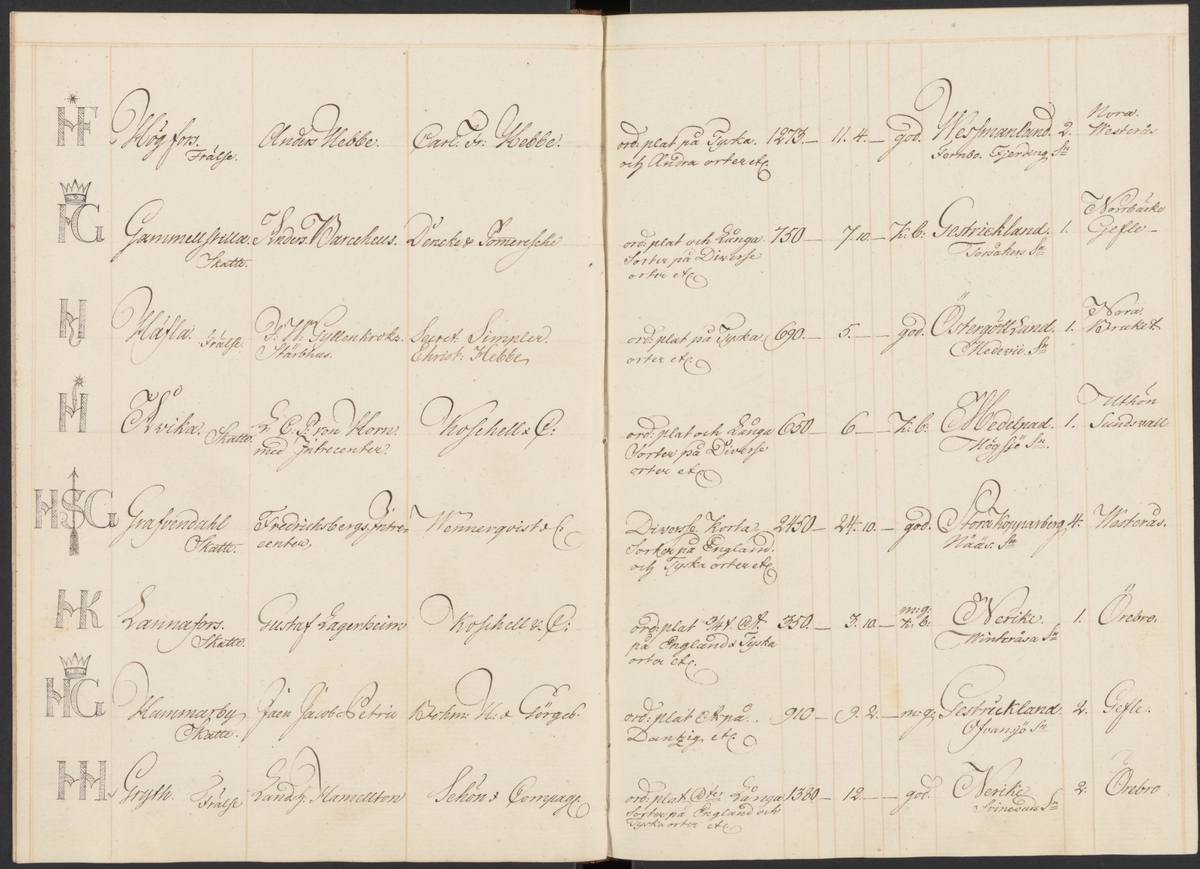 HF Högfors. Anders Hebbe. Carl. Fr. Hebbe. ord. plat på Tyska 1273 — 11. 4. — god. Westmanland. 2. Nora.
Frälse. och Andra orter etc Fernbo. Fjerding Sn Westerås
HG Gammellstilla. Anders Barcheus. Deneke & Pomeresche ord: plat och Långa 750 — 7. 10. — K: b: Gestrickland. 1. Norrbärke
Skatte. Sorter på Diverse Torsåkers Sn Gefle —
orter etc
H Häfla. Frälse Gyllenkroks Secret. Simpler. ord: plat på Tyska 690. — 5. — god. Östergöttland. 1. Nora.
Stärbhus. Christ: Hebbe orter etc Medevid. Sn
H Skatte. C. S. von Horn Koschell & C: ord: plat och Långa 650 — 6 — K: b: Medelpad. 1.
med Intrecenter. Sorter på Diverse Högsjö Sn. Sundsvall
orter etc
HSG Grafvendahl Fredricksbergs, Intre- Wennerqvist & C Diverse Korta 2450 — 24. 10. — god. Stora Kopparberg 4. Westerås.
Skatte. center, Sorter på England. Nääs. Sn
och Tyska orter etc
HK Lannafors. Gustaf Lagerheim Koschell & C: ord: plat 3/4 t. 350. — 3. 10. — m: g: Nerike. 1. Örebro.
Skatte. på England & Tyska K: b: Winteråsa Sn
orter etc
HG Hammarby, Jaen Jacob Petrie Bohm: H: & Görges. ord: plat på 910 — 9. 2. — m: g: Gestrickland. 2. Gefle.
Skatte. Danzig, etc Ofvansjö Sn
HH Gryth. Frälse Landsh. Hamellton Schön & Compag: ord: plat Långa 1380 — 12. — god. Nerike 2. Örebro
Sorter på England och Svinevads Sn
Tyska orter etc